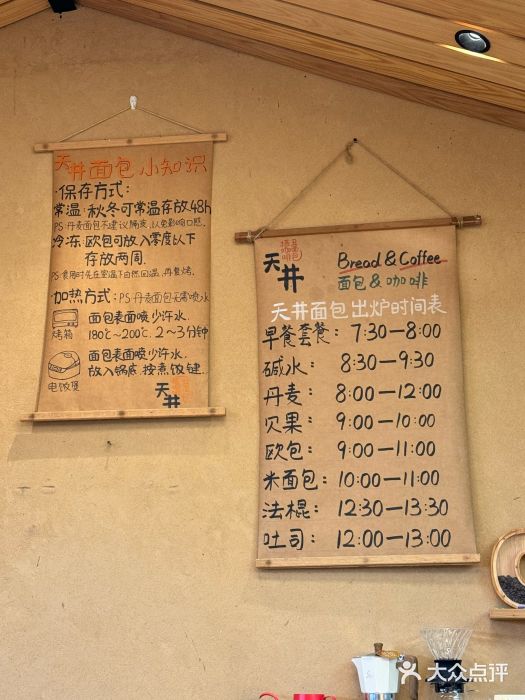 天井面包小知识
·保存方式：
常温：秋冬可常温存放48h
PS:丹麦面包不建议隔夜，以免影响口感.
冷冻：欧包可放入零度以下
存放两周.
PS:食用时先在室温下自然回温，再复烤.
·加热方式：PS:丹麦面包无需喷水
面包表面喷少许水.
180℃~200℃.2~3分钟
烤箱
面包表面喷少许水.
放入锅底，按煮饭键.
电饭煲
天井
天井
Bread & Coffee
面包 & 咖啡
天井面包出炉时间表
早餐套餐：7:30—8:00
碱水：8:30—9:30
丹麦：8:00—12:00
贝果：9:00—10:00
欧包：9:00—11:00
米面包：10:00—11:00
法棍：12:30—13:30
吐司：12:00—13:00
大众点评